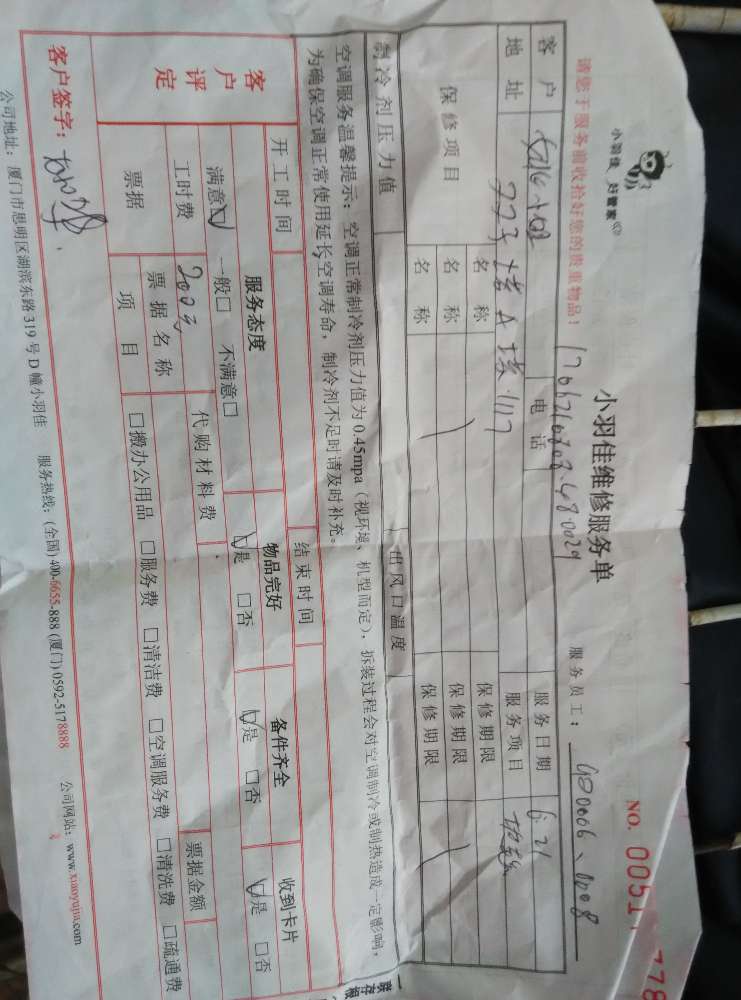 小羽佳 好管家
小羽佳维修服务单
NO. 0051
778
请您于服务前收拾好您的贵重物品!
服务员工:
客户
电话
服务日期 6.21
地址
服务项目
保修项目
名称
保修期限
名称
保修期限
名称
保修期限
制冷剂压力值
出风口温度
空调服务温馨提示:空调正常制冷剂压力值为0.45mpa(视环境、机型而定),拆装过程会对空调制冷或制热造成一定影响,
为确保空调正常使用延长空调寿命,制冷剂不足时请及时补充。
开工时间
结束时间
客户评定
服务态度
物品完好
备件齐全
收到卡片
满意☑ 一般□ 不满意□
☑是 □否
☑是 □否
☑是 □否
工时费
200元
代购材料费
票据
票据名称
票据金额
项目
□搬办公用品 □服务费 □清洁费 □空调服务费 □清洗费 □疏通费
客户签字:
公司地址:厦门市思明区湖滨东路319号D幢小羽佳 服务热线:(全国)400-6655-888(厦门)0592-5178888 公司网站:www.xiaoyujia.com